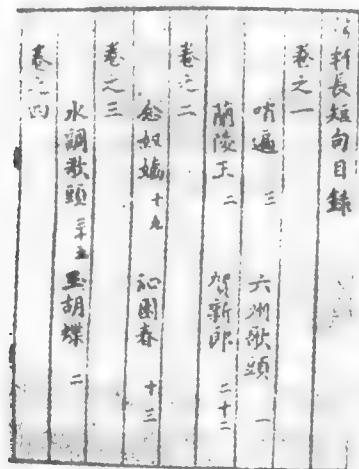 軒長短句目錄
卷之一
哨遍 三 六州歌頭 一
蘭陵王 二 賀新郎 二十二
卷之二
念奴嬌 十九 沁園春 十三
卷之三
水調歌頭 三十五 玉胡蝶 二
卷之四